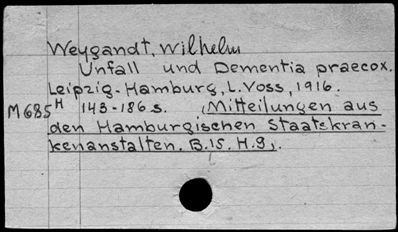 Weygandt, Wilhelm
Unfall und Dementia praecox.
Leipzig-Hamburg, L. Voss, 1916.
M685 H 143-186 s. (Mitteilungen aus
den Hamburgischen Staatskran-
kenanstalten. B.15. H.9).